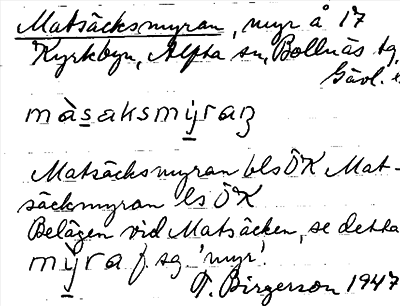 Matsäcksmyran, myr å 17
Kyrkbyn, Alfta sn, Bollnäs tg,
Gävl.
màsaksmýraṇ
Matsäcksmyran bls ÖK Mat-
säckmyran ls ÖK
Belägen vid Matsäcken, se detta
mỳra f. sg 'myr'.
T. Birgerson 1947